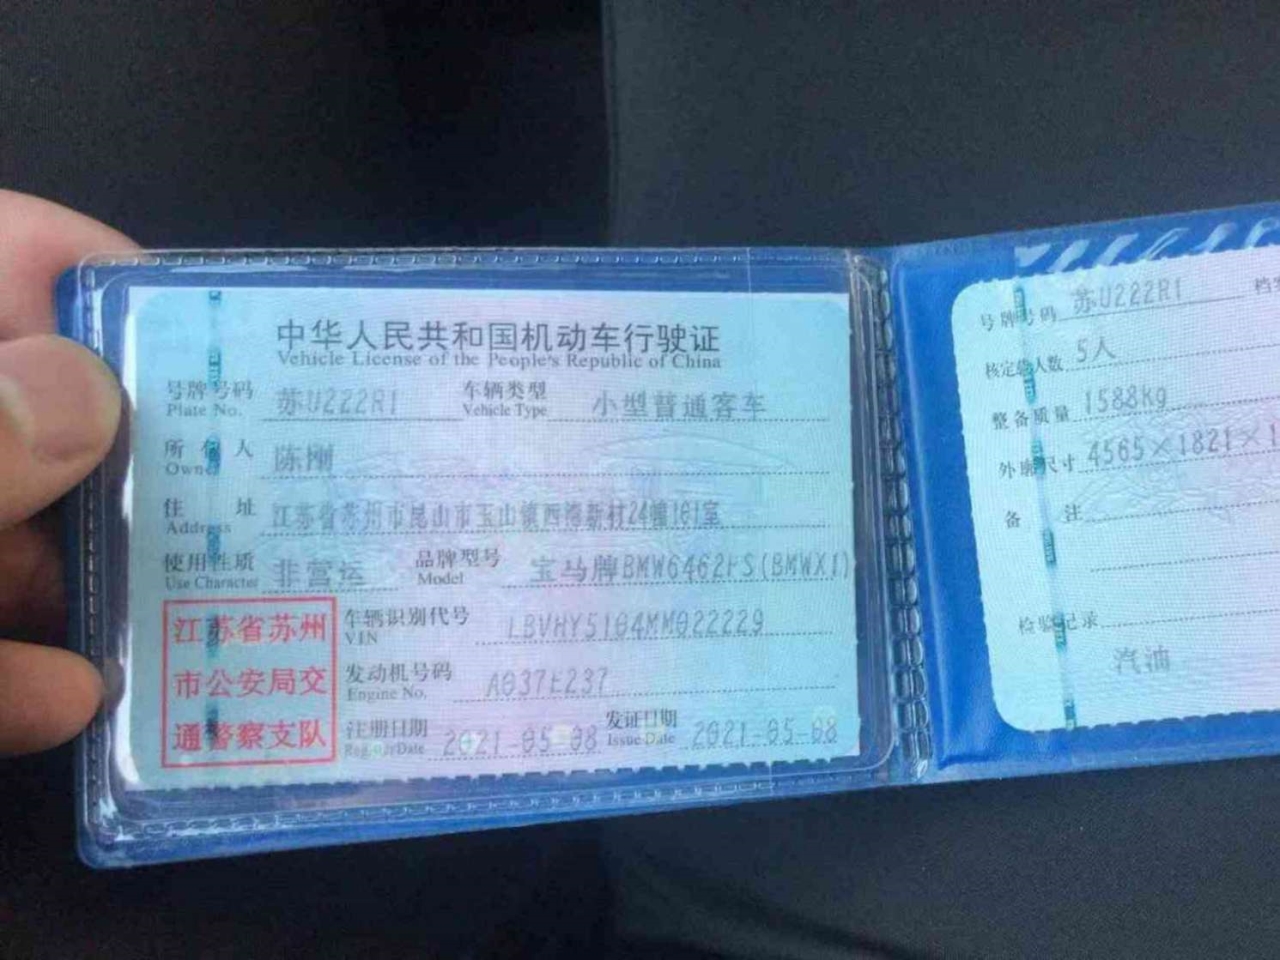 中华人民共和国机动车行驶证
Vehicle License of the People's Republic of China
号牌号码 苏U222R1 车辆类型 小型普通客车
Plate No. Vehicle Type
所有人 陈刚
Owner
住址 江苏省苏州市昆山市玉山镇西湾新村24幢101室
Address
使用性质 非营运 品牌型号 宝马牌BMW6462FS(BMWX1)
Use Character Model
江苏省苏州
市公安局交
通警察支队
车辆识别代号 LBVHY5104MM022229
VIN
发动机号码 A037E237
Engine No.
注册日期 2021-05-08 发证日期 2021-05-08
Register Date Issue Date
号牌号码 苏U222R1
核定载人数 5人
整备质量 1588kg
外廓尺寸 4565×1821×1
备注
检验记录
汽油